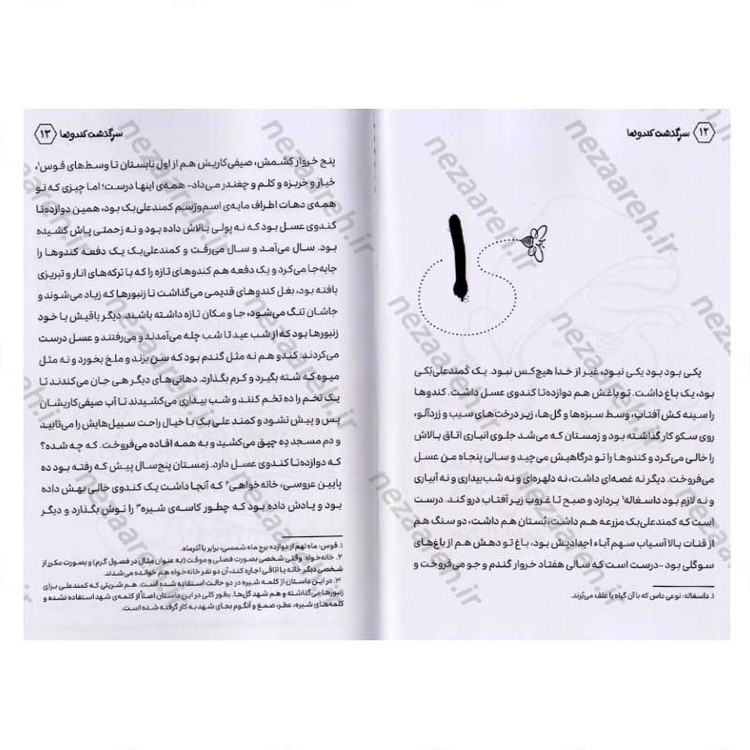 ۱۲ سرگذشت کندوها
۱
یکی بود یکی نبود، غیر از خدا هیچ‌کس نبود. یک کمندعلی‌بَکی
بود، یک باغ داشت. تو باغش هم دوازده‌تا کندوی عسل داشت. کندوها
را سینه کش آفتاب، وسط سبزه‌ها و گل‌ها، زیر درخت‌های سیب و زردآلو،
روی سکو کار گذاشته بود و زمستان که می‌شد جلوی انباری اتاق بالاش
را خالی می‌کرد و کندوها را تو درگاهیش می‌چید و سالی پنجاه من عسل
می‌فروخت. دیگر نه غصه‌ای داشت، نه دلهره‌ای و نه شب‌بیداری و نه آبیاری
و نه لازم بود داسغاله۱ بردارد و صبح تا غروب زیر آفتاب درو کند. درست
است که کمندعلی‌بک مزرعه هم داشت، بُستان هم داشت، دو سنگ هم
از قنات بالا آسیاب سهم آباء اجدادیش بود، باغ تو دهش هم از باغ‌های
سوگلی بود -درست است که سالی هفتاد خروار گندم و جو می‌فروخت و
۱. داسغاله: نوعی داس که با آن گیاه یا علف می‌بُرند.
سرگذشت کندوها ۱۳
پنج خروار کشمش، صیفی‌کاریش هم از اول تابستان تا وسط‌های قوس۱،
خیار و خربزه و کلم و چغندر می‌داد- همه‌ی اینها درست؛ اما چیزی که تو
همه‌ی دهات اطراف مایه‌ی اسم‌ورسم کمندعلی‌بک بود، همین دوازده‌تا
کندوی عسل بود که نه پولی بالاش داده بود و نه زحمتی پاش کشیده
بود. سال می‌آمد و سال می‌رفت و کمندعلی‌بک یک دفعه کندوها را
جابه‌جا می‌کرد و یک دفعه هم کندوهای تازه را که با ترکه‌های انار و تبریزی
بافته بود، بغل کندوهای قدیمی می‌گذاشت تا زنبورها که زیاد می‌شوند و
جاشان تنگ می‌شود، جا و مکان تازه داشته باشند. دیگر باقیش با خود
زنبورها بود که از شب عید تا شب چله می‌آمدند و می‌رفتند و عسل درست
می‌کردند. کندو هم نه مثل گندم بود که سن بزند و ملخ بخورد و نه مثل
میوه که شته بگیرد و کرم بگذارد. دهاتی‌های دیگر هی جان می‌کندند تا
یک تخم را ده تخم کنند و شب بیداری می‌کشیدند تا آب صیفی‌کاریشان
پس و پیش نشود و کمند علی بک با خیال راحت سبیل‌هایش را می‌تابید
و دم مسجد دِه چپق می‌کشید و به همه افاده می‌فروخت. که چه شده؟
که دوازده‌تا کندوی عسل دارد. زمستان پنج‌سال پیش که رفته بود ده
پایین عروسی، خانه‌خواهی۲ که آنجا داشت یک کندوی خالی بهش داده
بود و یادش داده بود که چطور کاسه‌ی شیره۳ را توش بگذارد و دیگر
۱. قوس: ماه نهم از دوازده برج ماه شمسی، برابر با آذرماه.
۲. خانه‌خواه: وقتی شخصی بصورت فصلی و موقت (به عنوان مثال در فصول گرم) و بصورت مکرر از
شخصی دیگر خانه یا اتاقی اجاره کند، آن دو نفر خانه‌خواه هم خوانده می‌شدند.
۳. در این داستان از کلمه شیره در دو حالت استفاده شده است. هم شربتی که کمندعلی برای
زنبورها می‌گذاشته و هم شهد گل‌ها. بطور کلی در این داستان اصلاً از کلمه‌ی شهد استفاده نشده و
کلمه‌های شیره، عطر، صمغ و آنگوم بجای شهد به کار گرفته شده است.
nezaareh.ir